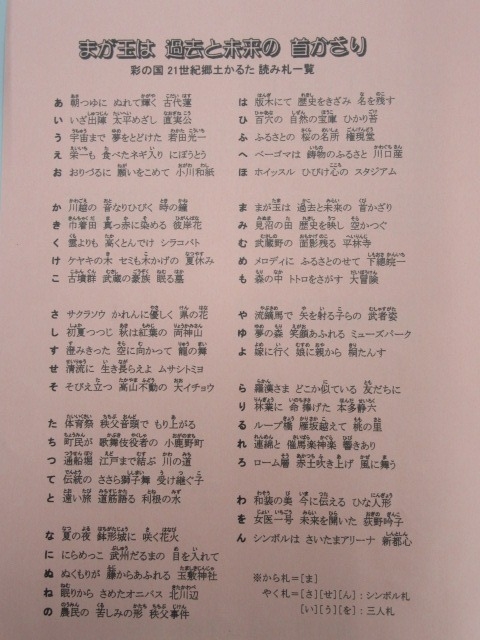 まが玉は 過去と未来の 首かざり
彩の国 21世紀郷土かるた 読み札一覧
あ 朝つゆに ぬれて輝く 古代蓮
い いざ出陣 太平めざし 直実公
う 宇宙まで 夢をとどけた 若田光一
え 栄一も 食べたネギ入り にぼうとう
お おりづるに 願いをこめて 小川和紙
か 川越の 音なりひびく 時の鐘
き 巾着田 真っ赤に染める 彼岸花
く 雲よりも 高くとんでけ シラコバト
け ケヤキの木 セミも木かげの 夏休み
こ 古墳群 武蔵の豪族 眠る墓
さ サクラソウ かれんに優しく 県の花
し 初夏つつじ 秋は紅葉の 両神山
す 澄みきった 空に向かって 龍の舞
せ 清流に 生き長らえよ ムサシトミヨ
そ そびえ立つ 高山不動の 大イチョウ
た 体育祭 秩父音頭で もり上がる
ち 町民が 歌舞伎役者の 小鹿野町
つ 通船堀 江戸まで結ぶ 川の道
て 伝統の ささら獅子舞 受け継ぐ子
と 遠い旅 道筋語る 利根の水
な 夏の夜 鉢形城に 咲く花火
に にらめっこ 武州だるまの 目を入れて
ぬ ぬくもりが 藤からあふれる 玉敷神社
ね 眠りから さめたオニバス 北川辺
の 農民の 苦しみの形 秩父事件
は 版木にて 歴史をきざみ 名を残す
ひ 百穴の 自然の宝庫 ひかり苔
ふ ふるさとの 桜の名所 権現堂
へ ベーゴマは 鋳物のふるさと 川口産
ほ ホイッスル ひびけ心の スタジアム
ま まが玉は 過去と未来の 首かざり
み 見沼の田 歴史を映し 空かつぐ
む 武蔵野の 面影残る 平林寺
め メロディに ふるさとのせて 下總皖一
も 森の中 トトロをさがす 大冒険
や 流鏑馬で 矢を射る子らの 武者姿
ゆ 夢の森 笑顔あふれる ミューズパーク
よ 嫁に行く 娘に親から 桐たんす
ら 羅漢さま どこか似ている 友だちに
り 林業に 命捧げた 本多静六
る ループ橋 雁坂越えて 桃の里
れ 連綿と 催馬楽神楽 響きあり
ろ ローム層 赤土吹き上げ 風に舞う
わ 和装の美 今に伝える ひな人形
を 女医一号 未来を開いた 荻野吟子
ん シンボルは さいたまアリーナ 新都心
※から札＝[ま]
やく札＝[さ][せ][ん]：シンボル札
[い][う][を]：三人札